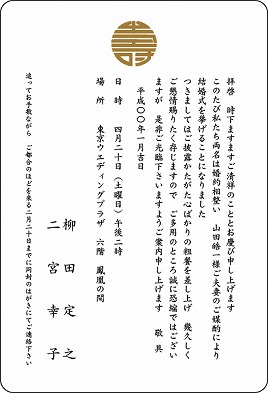 拝啓　時下ますますご清祥のこととお慶び申し上げます
このたび私たち両名は婚約相整い　山田皓一様ご夫妻のご媒酌により
結婚式を挙げることになりました
つきましてはご披露かたがた心ばかりの粗餐を差し上げ　幾久しく
ご懇情賜りたく存じますので　ご多用のところ誠に恐縮ではござい
ますが　是非ご光臨下さいますようご案内申し上げます　敬具
平成〇〇年一月吉日
日時　四月二十日（土曜日）午後二時
場所　東京ウエディングプラザ　六階　鳳凰の間
柳田定之
二宮幸子
追ってお手数ながら　ご都合のほどを来る二月二十日までに同封のはがきにてご連絡下さい